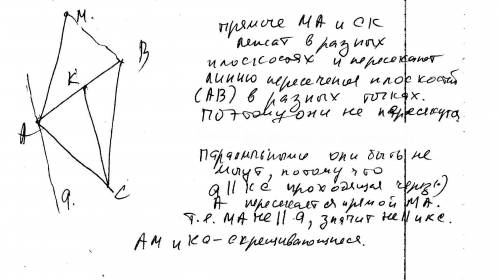 М.
В
К
А
С
а.
прямые МА и СК
лежат в разных
плоскостях и пересекают
линию пересечения плоскостей
(АВ) в разных точках.
поэтому они не пересекутся
Параллельными они быть не
могут, потому что
а || кс проходящая через
А пересекается прямой МА.
т.е. МА не || а, значит не || и кс.
АМ и КС - скрещивающиеся.